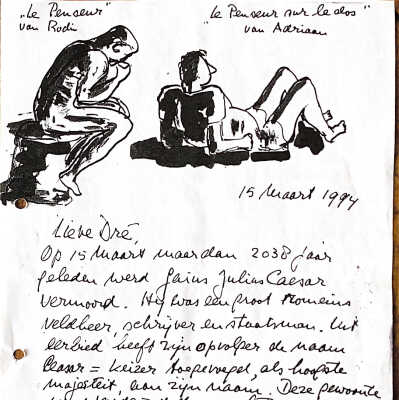 „Le Penseur"
van Rodin
„Le Penseur sur le dos"
van Adriaan
15 Maart 1994
Lieve Dré,
Op 15 Maart maar dan 2038 jaar
geleden werd Gaius Julius Caesar
vermoord. Hij was een groot Romeins
veldheer, schrijver en staatsman. Uit
eerbied heeft zijn opvolger de naam
Ceasar = keizer toegevoegd, als hoogste
majesteit, aan zijn naam. Deze gewoonte